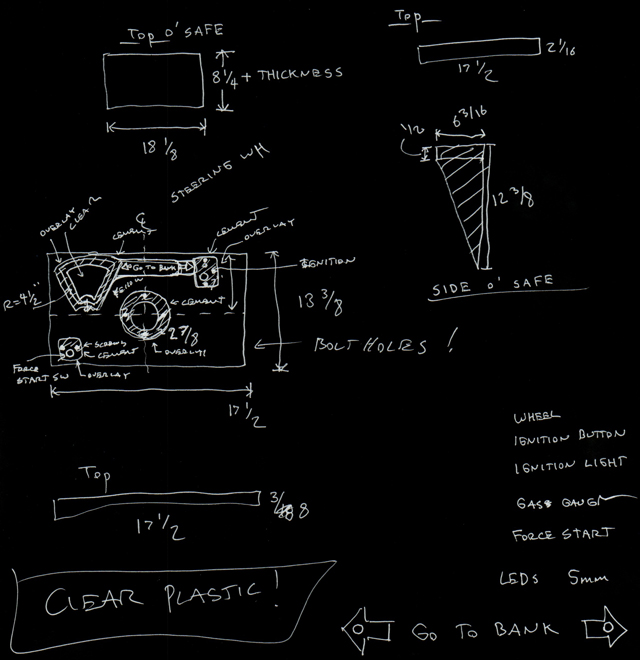 TOP O' SAFE
8 1/4 + THICKNESS
18 1/8
TOP
2 1/16
17 1/2
6 3/16
1/2
12 3/8
SIDE O' SAFE
STEERING WH
OVERLAY
CLEAR
CEMENT
℄
CEMENT
OVERLAY
GO TO BANK
IGNITION
R=4 1/2"
CEMENT
13 3/8
2 7/8
OVERLAY
BOLT HOLES!
SCREWS
CEMENT
FORCE
START SW
OVERLAY
17 1/2
WHEEL
IGNITION BUTTON
IGNITION LIGHT
GAS GAUGE
FORCE START
LEDS 5mm
TOP
3/8
17 1/2
CLEAR PLASTIC!
GO TO BANK